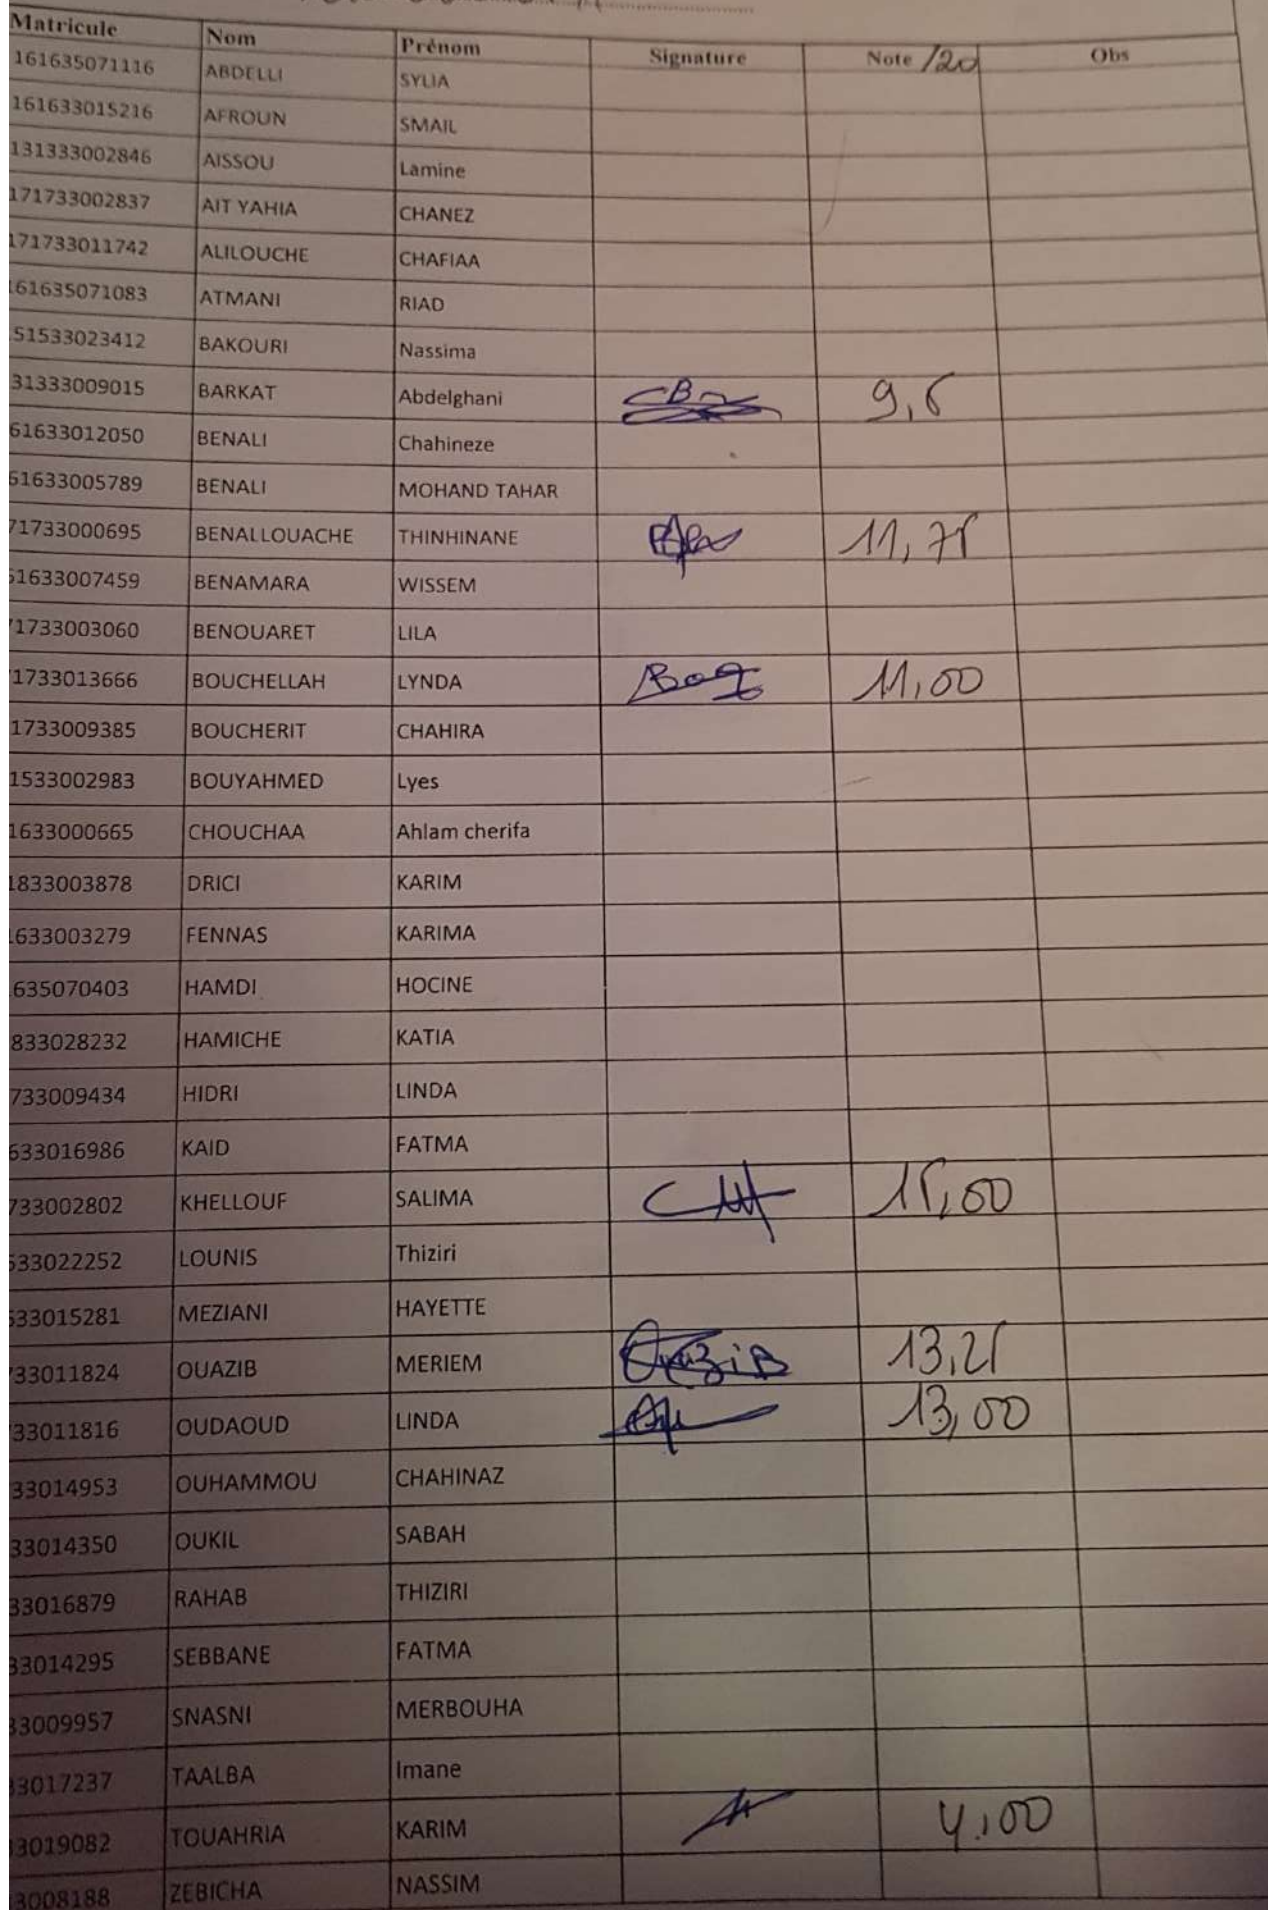 Matricule Nom Prénom Signature Note /20 Obs
161635071116 ABDELLI SYLIA
161633015216 AFROUN SMAIL
131333002846 AISSOU Lamine
171733002837 AIT YAHIA CHANEZ
171733011742 ALILOUCHE CHAFIAA
161635071083 ATMANI RIAD
51533023412 BAKOURI Nassima
31333009015 BARKAT Abdelghani 9,5
61633012050 BENALI Chahineze
61633005789 BENALI MOHAND TAHAR
71733000695 BENALLOUACHE THINHINANE 11,75
61633007459 BENAMARA WISSEM
71733003060 BENOUARET LILA
1733013666 BOUCHELLAH LYNDA 11,00
1733009385 BOUCHERIT CHAHIRA
1533002983 BOUYAHMED Lyes
1633000665 CHOUCHAA Ahlam cherifa
1833003878 DRICI KARIM
1633003279 FENNAS KARIMA
635070403 HAMDI HOCINE
833028232 HAMICHE KATIA
733009434 HIDRI LINDA
633016986 KAID FATMA
733002802 KHELLOUF SALIMA 15,00
533022252 LOUNIS Thiziri
633015281 MEZIANI HAYETTE
733011824 OUAZIB MERIEM OuaziB 13,25
33011816 OUDAOUD LINDA 13,00
33014953 OUHAMMOU CHAHINAZ
33014350 OUKIL SABAH
33016879 RAHAB THIZIRI
33014295 SEBBANE FATMA
33009957 SNASNI MERBOUHA
33017237 TAALBA Imane
33019082 TOUAHRIA KARIM 4,00
3008188 ZEBICHA NASSIM